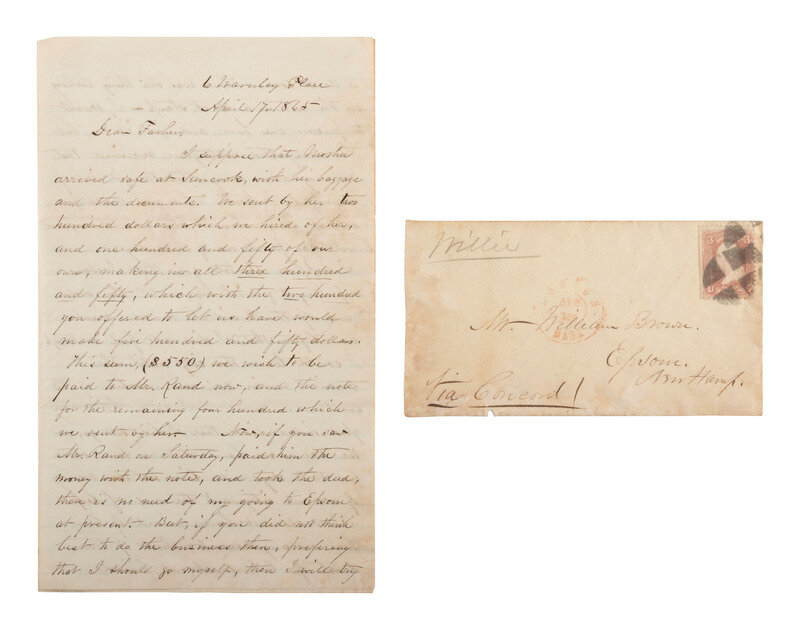 6 Waverley Place
April 17. 1865
Dear Father,
I suppose that Mother
arrived safe at Suncook, with her baggage
and the documents. We sent by her two
hundred dollars which we hired of her,
and one hundred and fifty of our
own, making in all three hundred
and fifty, which with the two hundred
you offered to let us have would
make five hundred and fifty dollars.
This sum, ($550) we wish to be
paid to Mr. Rand now, and the note
for the remaining four hundred which
we sent by her. Now, if you saw
Mr. Rand on Saturday, paid him the
money with the note, and took the deed,
there is no need of my going to Epsom
at present. But, if you did not think
best to do the business then, prefering
that I should go myself, then I will try
Willie
3 3
BOSTON
MASS
Mr. William Brown.
Epsom.
New Hamp.
Via Concord!